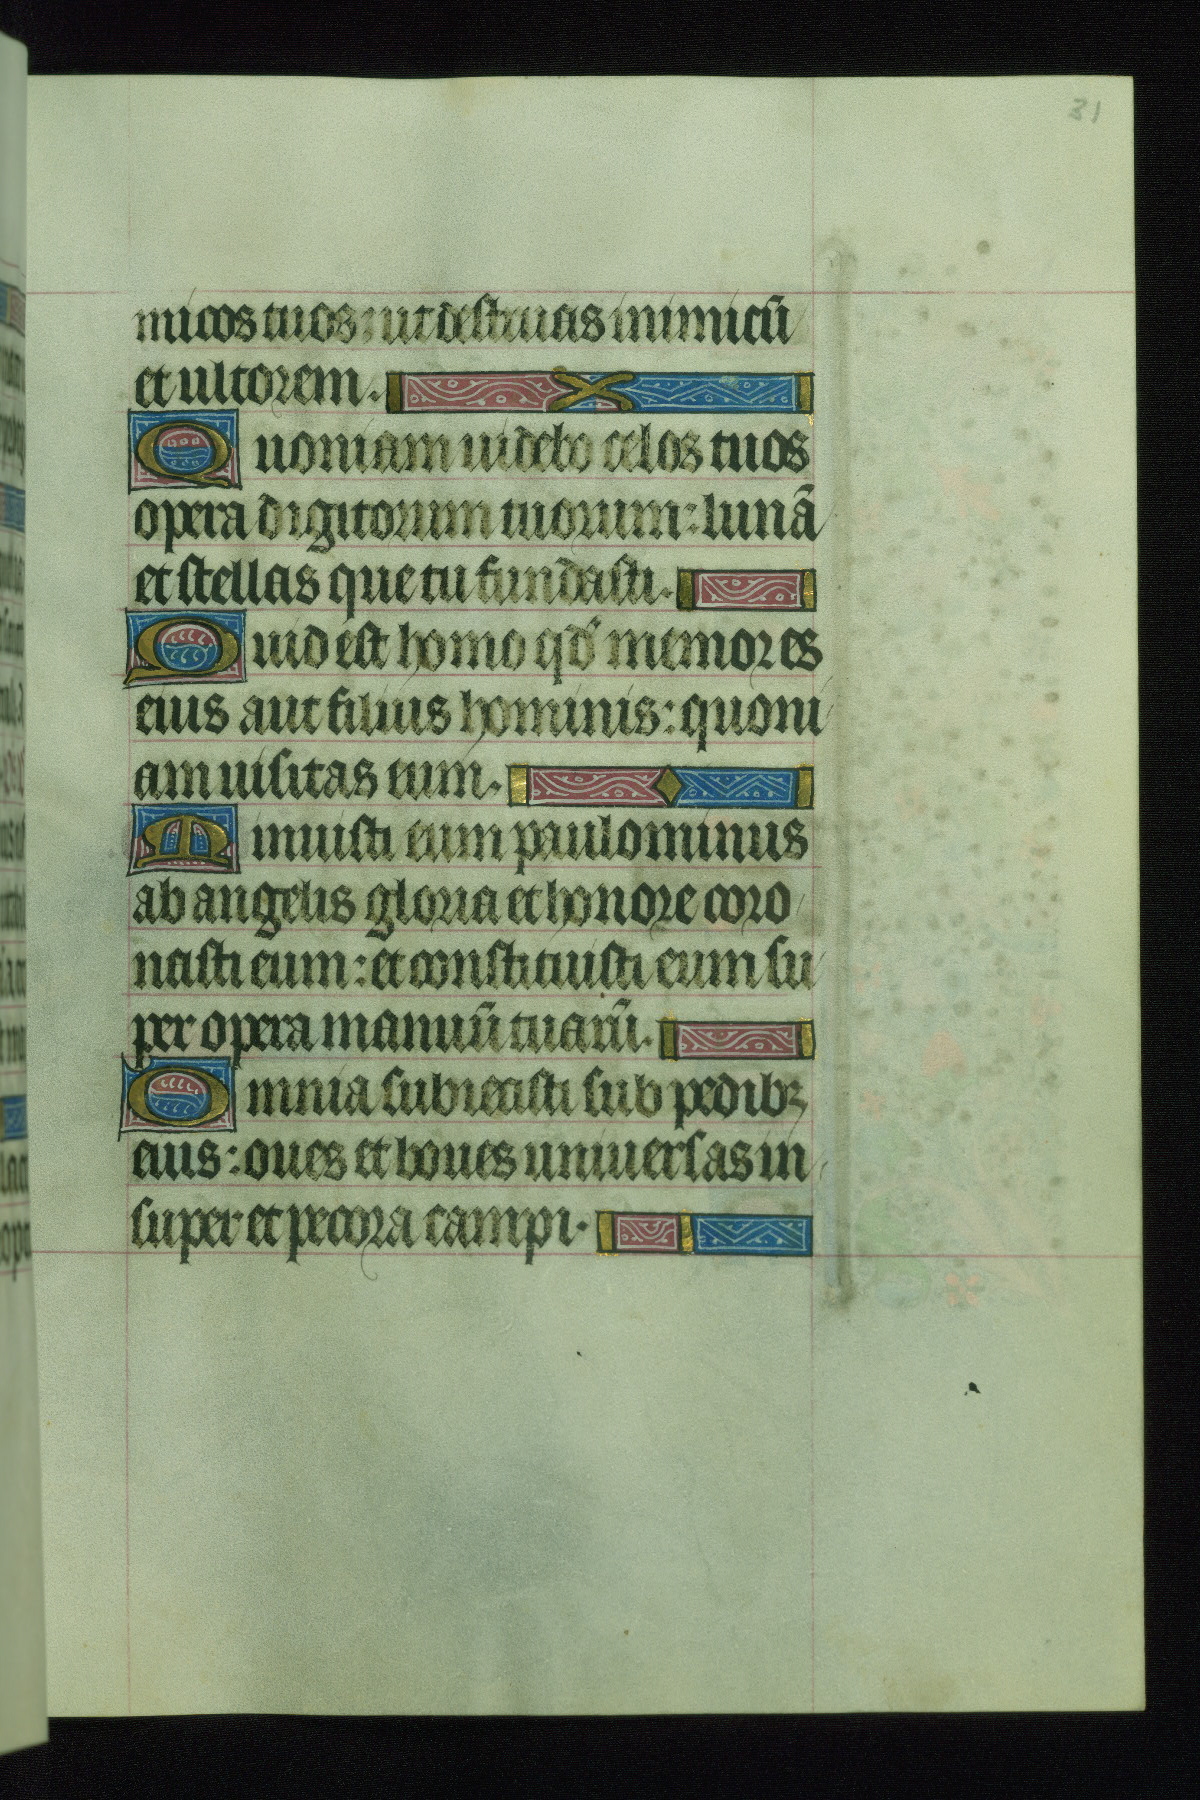 31
micos tuos: ut destruas inimicū
et ultorem.
Quoniam uidebo celos tuos
opera digitorum tuorum: lunā
et stellas que tu fundasti.
Quid est homo qd' memor es
eius aut filius hominis: quoni
am uisitas eum.
Minuisti eum paulominus
ab angelis gloria et honore coro
nasti eum: et constituisti eum su
per opera manuū tuarū.
Omnia subiecisti sub pedibꝫ
eius: oues et boues uniuersas in
super et pecora campi.